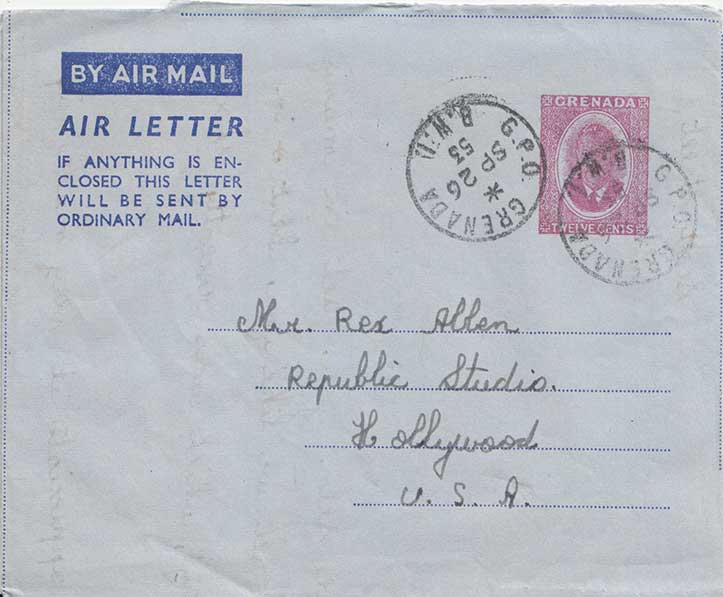 BY AIR MAIL
AIR LETTER
IF ANYTHING IS EN-
CLOSED THIS LETTER
WILL BE SENT BY
ORDINARY MAIL.
GRENADA
TWELVE CENTS
G.P.O. GRENADA B.W.I.
* 26
SP
53
G.P.O. GRENADA B.W.I.
Mr. Rex Allen
Republic Studio.
Hollywood
U. S. A.